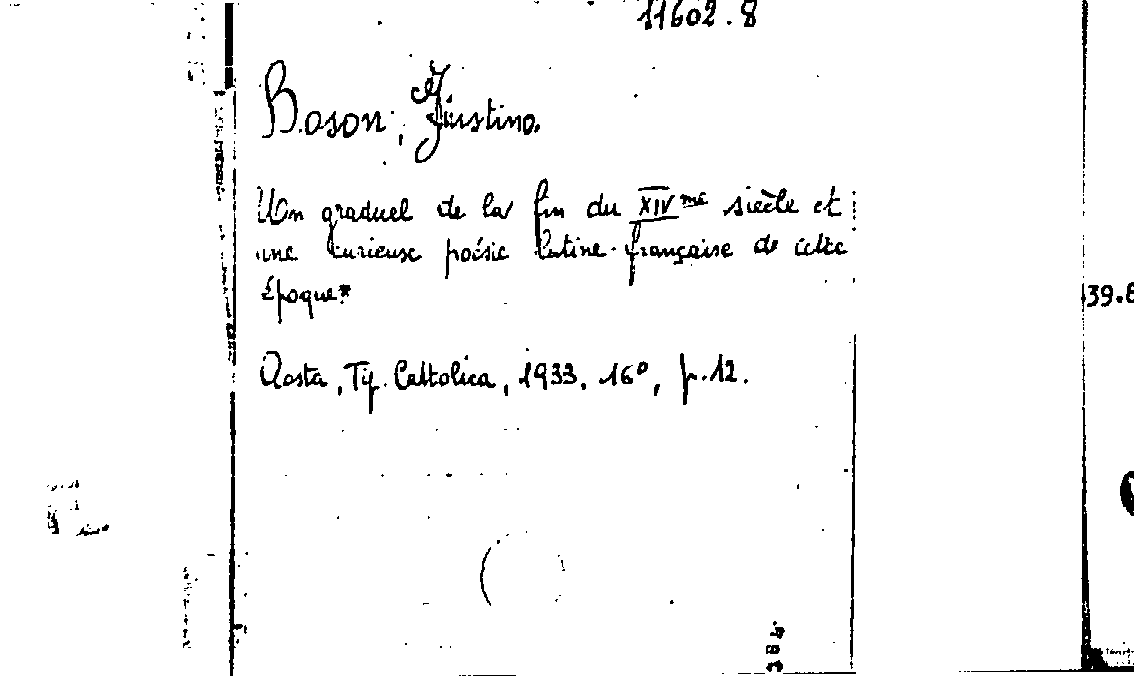 11602.8
Boson, Giustino.
Un graduel de la fin du XIVme siècle et
une curieuse poésie latine-française de cette
époque.
Aosta, Tip. Cattolica, 1933, 16°, p. 12.
384